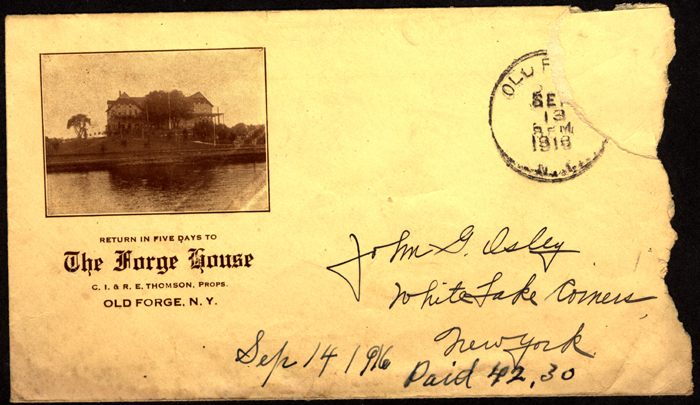 OLD F
SEP
13
PM
N.Y.
RETURN IN FIVE DAYS TO
The Forge House
C. I. & R. E. THOMSON, PROPS.
OLD FORGE, N. Y.
John G. Isley
White Lake Corners
New York
Sep 14 1916
Paid 42,30